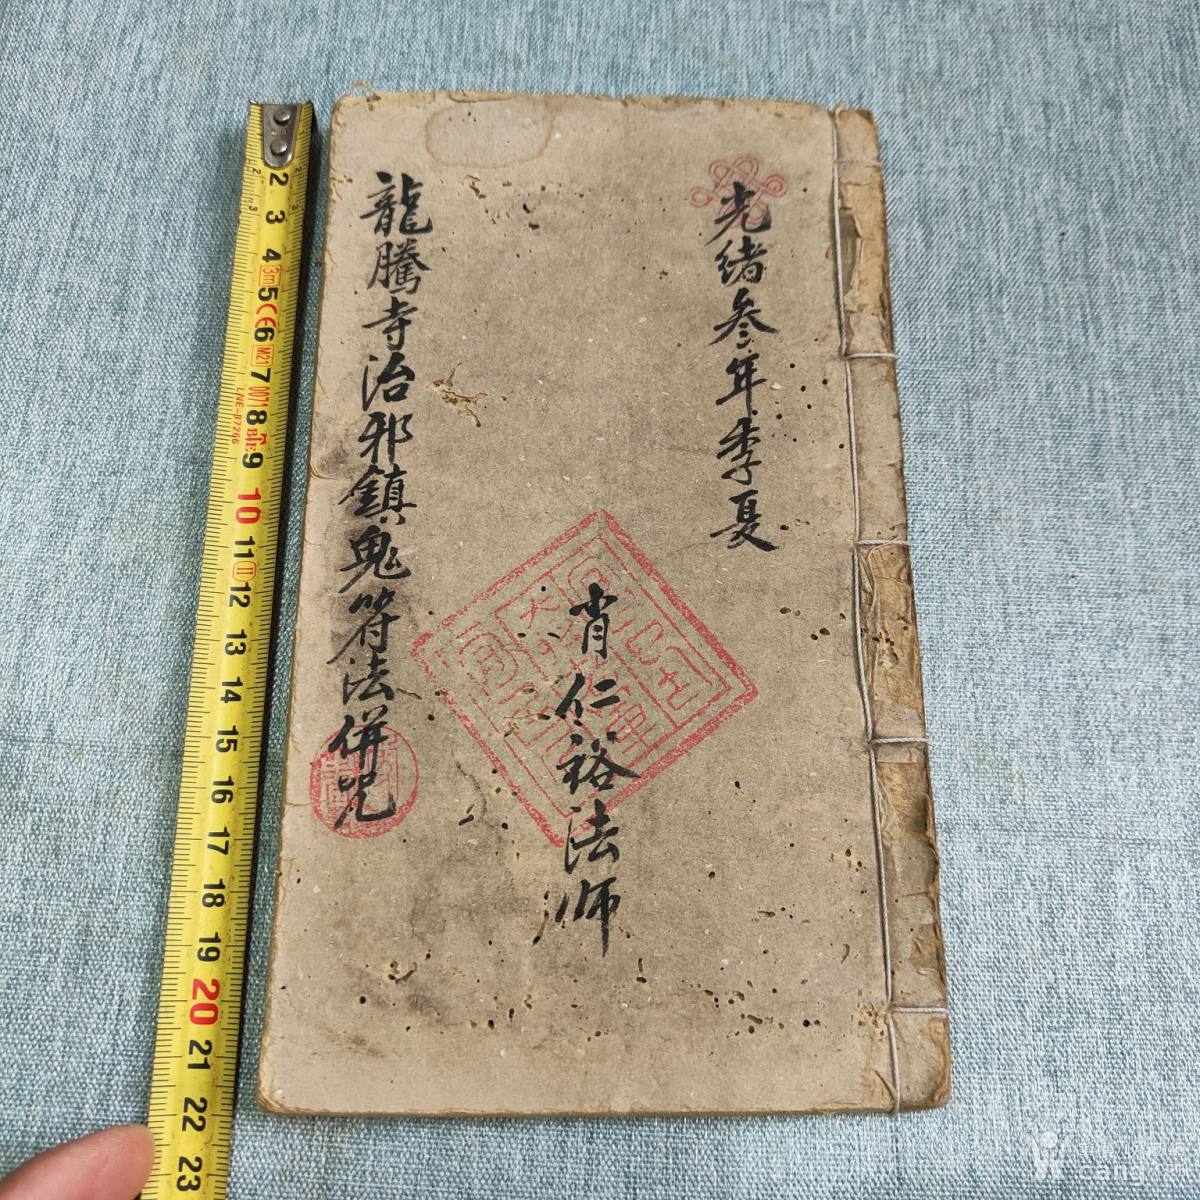 光绪叁年季夏
肖仁裕法师
龍騰寺治邪鎮鬼符法併咒
2
3
4
3m
5
CE
6
M21
7
0071
8
LNE-87266
9
10
11
II
12
13
14
15
16
17
18
19
20
21
22
23